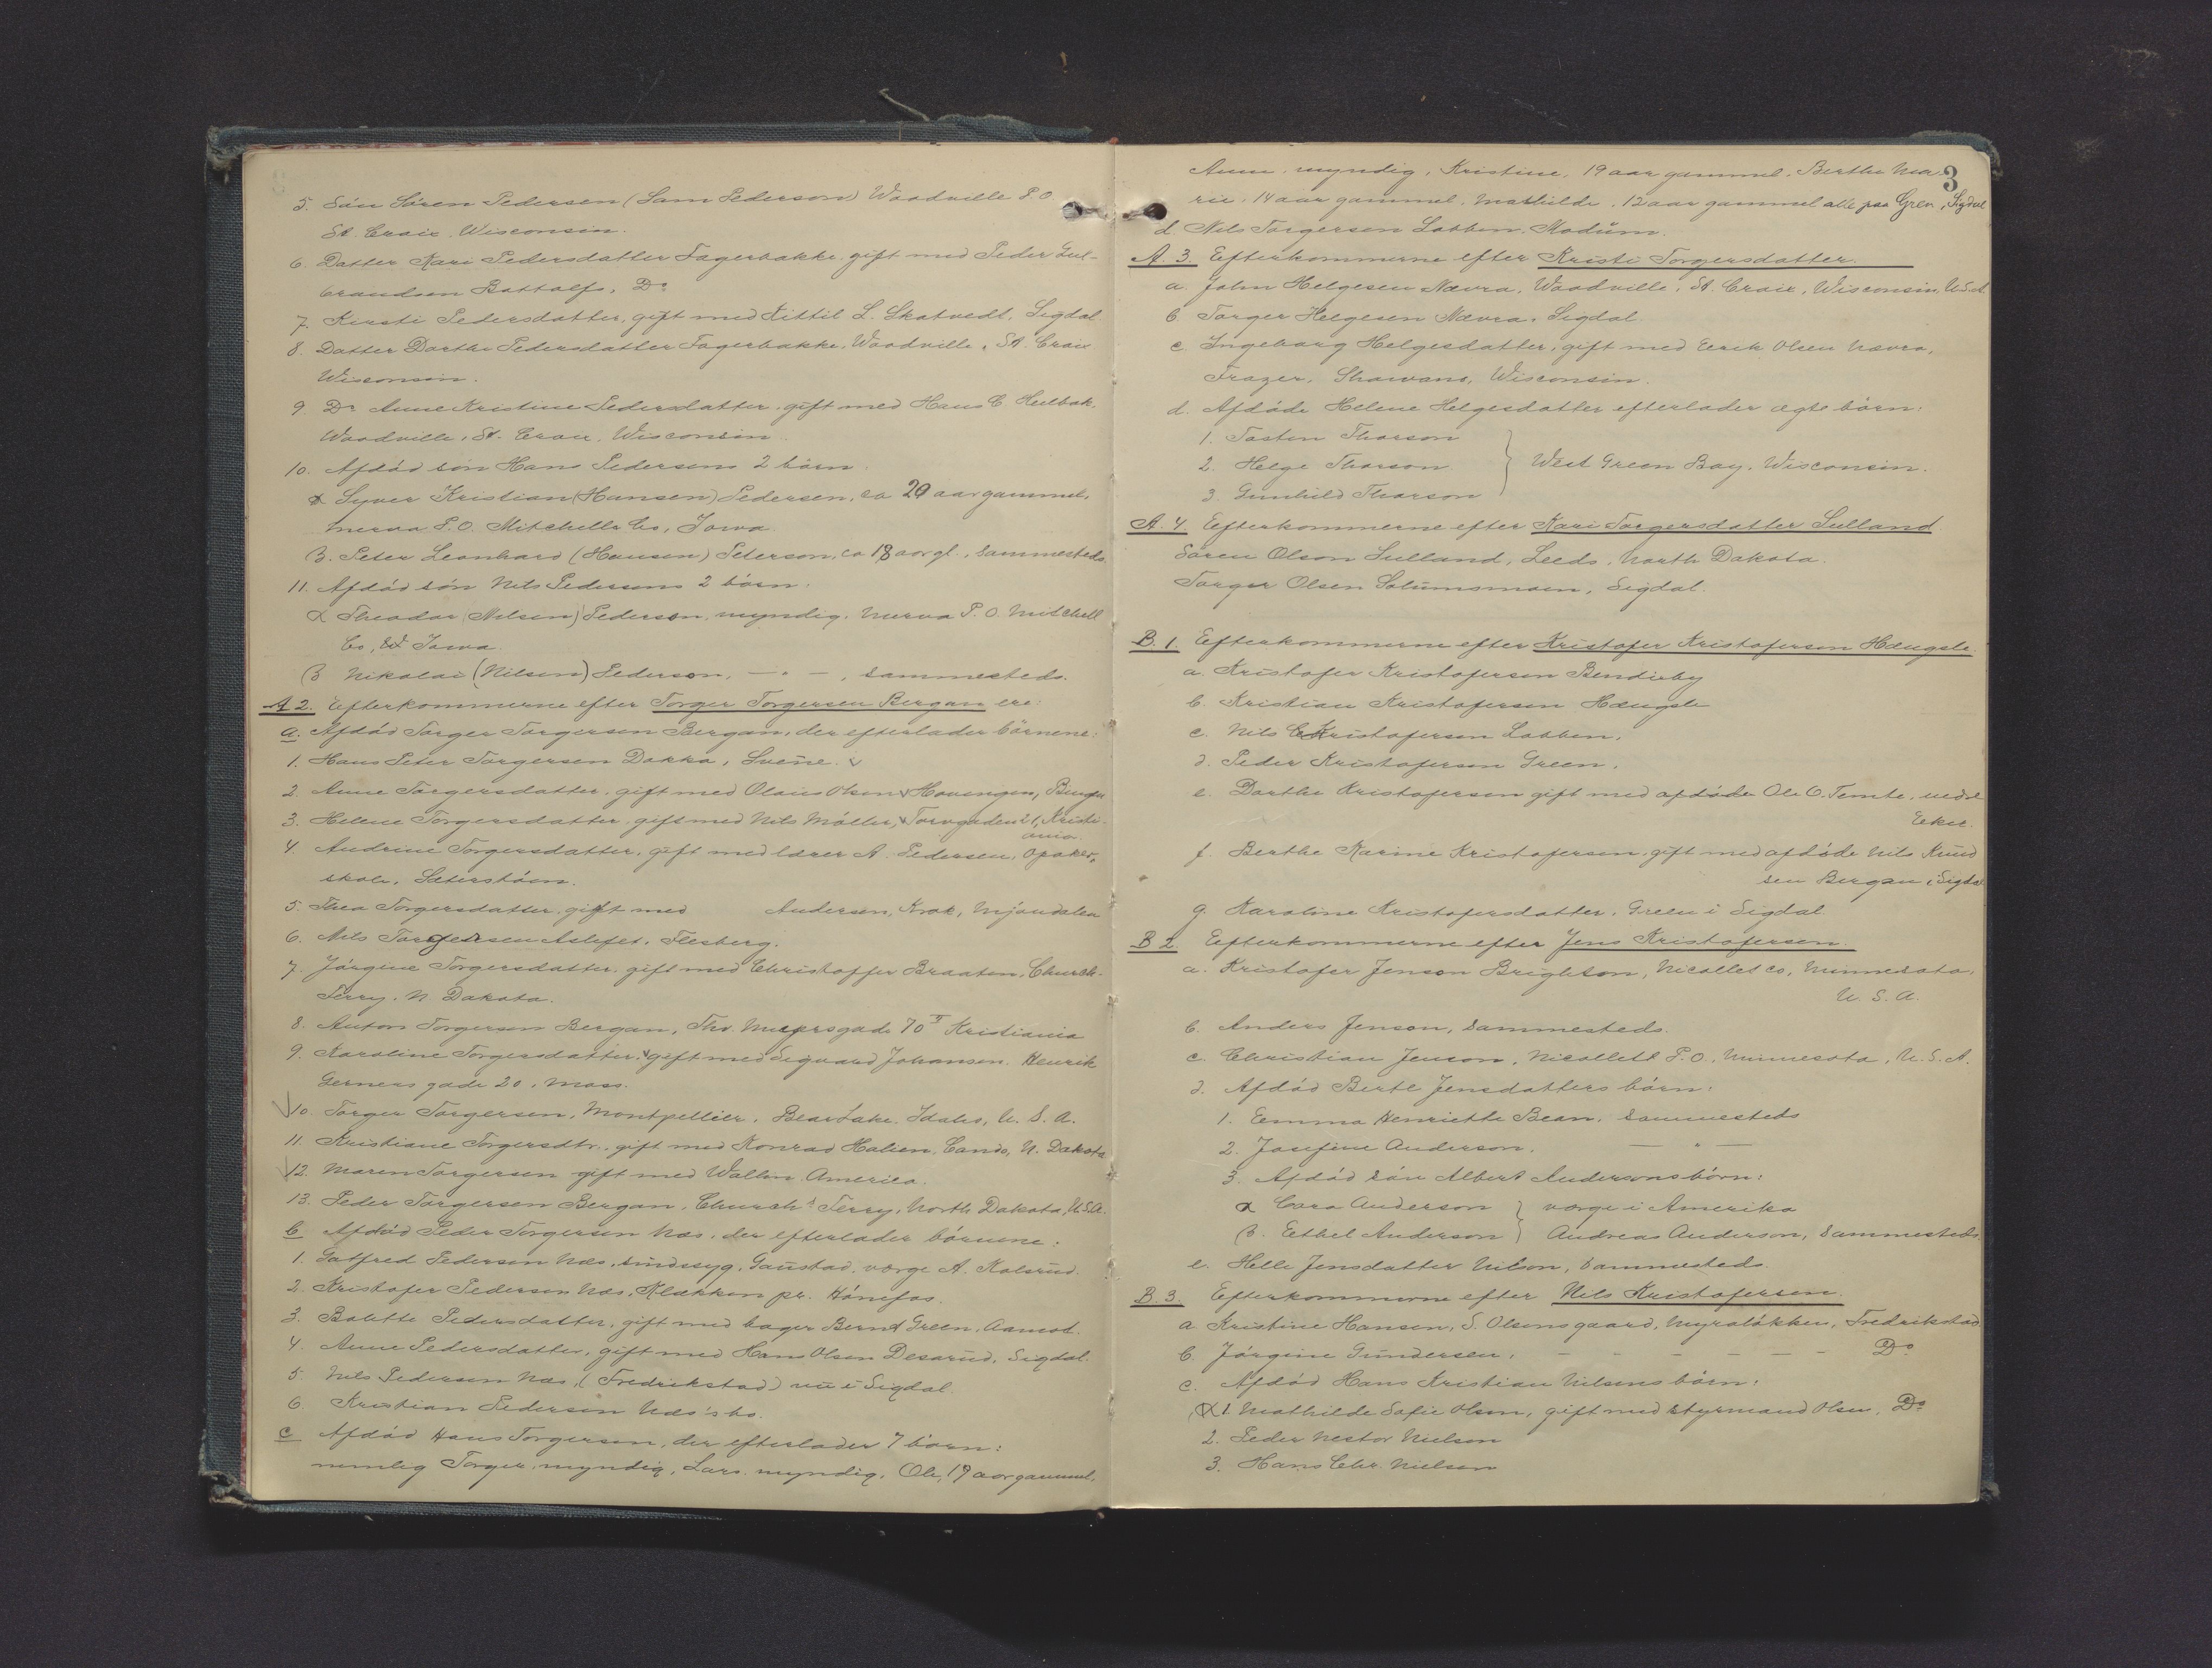 5. Sön Sören Pedersen (Sam Pederson) Woodville P.O.
St. Croix, Wisconsin.
6. Datter Kari Pedersdatter Fagerbakke, gift med Peder Gul-
brandsen Battalfs, Do
7. Kirsti Pedersdatter, gift med Kittil L. Skatvedt, Sigdal
8. Datter Dorthe Pedersdatter Fagerbakke, Woodville, St. Croix
Wisconsin.
9. Do Anne Kristine Pedersdatter, gift med Hans C. Heilbak,
Woodville, St. Croix, Wisconsin.
10. Afdöd sön Hans Pedersens 2 börn.
α Syver Kristian (Hansen) Pedersen, ca 20 aar gammel,
Merva P.O. Mitchells Co, Jowa
β. Peter Leonhard (Hansen) Peterson, ca 18 aar gl., sammesteds.
11. Afdöd sön Nils Pedersens 2 börn.
α Theodor (Nilsen) Pederson, myndig, Nerva P.O. Mitchell
Co, Iowa.
β Nikolai (Nilsen) Pederson, — " —, sammesteds.
A 2. Efterkommerne efter Torger Torgersen Bergan ere:
a. Afdöd Torger Torgersen Bergan, der efterlader börnene:
1. Hans Peter Torgersen Dokka, Svene. v
2. Anne Torgersdatter, gift med Olaus Olsen v Havengen, Bingen
3. Helene Torgersdatter, gift med Nils Möller, v Torvgaden 21, Kristi-
ania.
4. Andrine Torgersdatter, gift med lærer A. Pedersen, Opaker,
skole, Sæterstöen.
5. Thea Torgersdatter, gift med Andersen, Krok, Mjöndalen
6. Nils Torgersen Aslefet, Flesberg.
7. Jörgine Torgersdatter, gift med Christoffer Braaten, Church-
Ferry, N. Dakota.
8. Anton Torgersen Bergan, Thv. Meyersgade 70 II Kristiania
9. Karoline Torgersdatter, v gift med Sigvard Johansen, Henrik
Gerners gade 20, Moss.
√10. Torger Torgersen, Montpellier, Bear Lake, Idaho, U.S.A.
11. Kristiane Torgersdtr., gift med Konrad Halien, Cando, N. Dakota
√12. Maren Torgersen gift med Wallin, America.
13. Peder Torgersen Bergan, Church's Ferry, North Dakota, U.S.A.
b Afdöd Peder Torgersen Næs, der efterlader börnene:
1. Gotfred Pedersen Næs, sindssyg, Gaustad, værge A. Kolsrud.
2. Kristofer Pedersen Næs, Klækken pr. Hönefos.
3. Bolette Pedersdatter, gift med bager Bernt Green, Aamot.
4. Anne Pedersdatter, gift med Hans Olsen Desarud, Sigdal.
5. Nils Pedersen Næs, (Fredrikstad) nu i Sigdal.
6. Kristian Pedersen Næs's bo.
c Afdöd Hans Torgersen, der efterlader 7 börn:
nemlig Torger, myndig, Lars, myndig, Ole, 19 aar gammel,
3
Anne, myndig, Kristine, 19 aar gammel, Berthe Ma-
rie, 14 aar gammel, Mathilde, 12 aar gammel alle paa Gren, Sigdal
d Nils Torgersen Lobben, Modum.
A. 3. Efterkommerne efter Kristi Torgersdatter.
a. John Helgesen Nævra, Woodville, St. Croix, Wisconsin, U.S.A.
b. Torger Helgesen Nævra, Sigdal
c. Ingeborg Helgesdatter, gift med Eerik Olsen Nævra,
Frazer, Shawano, Wisconsin.
d. Afdöde Helene Helgesdatter efterlader ægte börn:
1. Tosten Thorson
2. Helge Thorson } West Green Bay, Wisconsin.
3. Gunhild Thorson
A. 4. Efterkommerne efter Kari Torgersdatter Sulland
Sören Olson Sulland, Leeds, North Dakota.
Torger Olsen Solumsmoen, Sigdal.
B. 1. Efterkommerne efter Kristofer Kristofersen Haugsle
a. Kristofer Kristofersen Bendieby
b. Kristian Kristofersen Haugsle
c. Nils Kristofersen Lobben,
d. Peder Kristofersen Green,
e. Dorthe Kristofersen gift med afdöde Ole O. Temte, nedre
Eker.
f. Berthe Karine Kristofersen, gift med afdöde Nils Knud
sen Bergan, i Sigdal
g. Karoline Kristofersdatter, Green i Sigdal
B 2. Efterkommerne efter Jens Kristofersen.
a. Kristofer Jenson Brighton, Nicollet co, Minnesota,
U. S. A.
b. Anders Jenson, sammesteds.
c. Christian Jenson, Nicollett P.O, Minnesota, U.S.A.
d. Afdöd Birte Jensdatters börn:
1. Emma Henriette Bean, sammesteds
2. Josefine Anderson, — " —
3. Afdöd sön Albert Andersons börn:
α Cora Anderson } værge i Amerika
β. Ethel Anderson } Andreas Anderson, sammesteds
e. Helle Jensdatter Nilson, sammesteds.
B. 3. Efterkommerne efter Nils Kristofersen.
a. Kristine Hansen, S. Olsens gaard, Myralökken, Fredrikstad
b. Jörgine Gundersen, - - - - - - Do
c. Afdöd Hans Kristian Nilsens börn:
1. Mathilde Sofie Olsen, gift med styrmand Olsen, Do
2. Peder Nestor Nielsen
3. Hans Chr. Nielsen